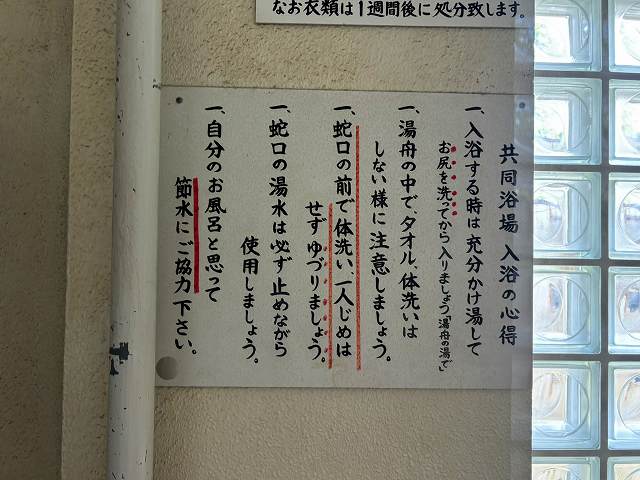 なお衣類は1週間後に処分致します。
共同浴場 入浴の心得
一、入浴する時は充分かけ湯して
お尻を洗ってから入りましょう「湯舟の湯で」
一、湯舟の中で、タオル、体洗いは
しない様に注意しましょう。
一、蛇口の前で体洗い、一人じめは
せずゆづりましょう。
一、蛇口の湯水は必ず止めながら
使用しましょう。
一、自分のお風呂と思って
節水にご協力下さい。